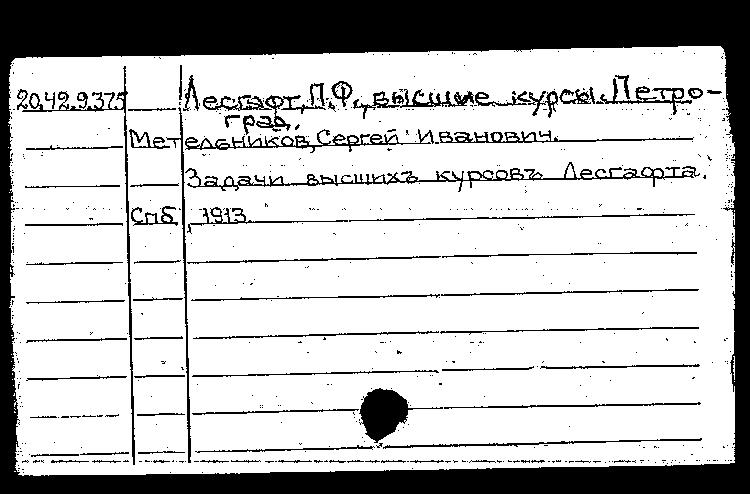 20.42.9.375 Лесгафт, П.Ф., высшие курсы. Петро-
град.
Метельников, Сергей Иванович.
Задачи высшихъ курсовъ Лесгафта.
Спб, 1913